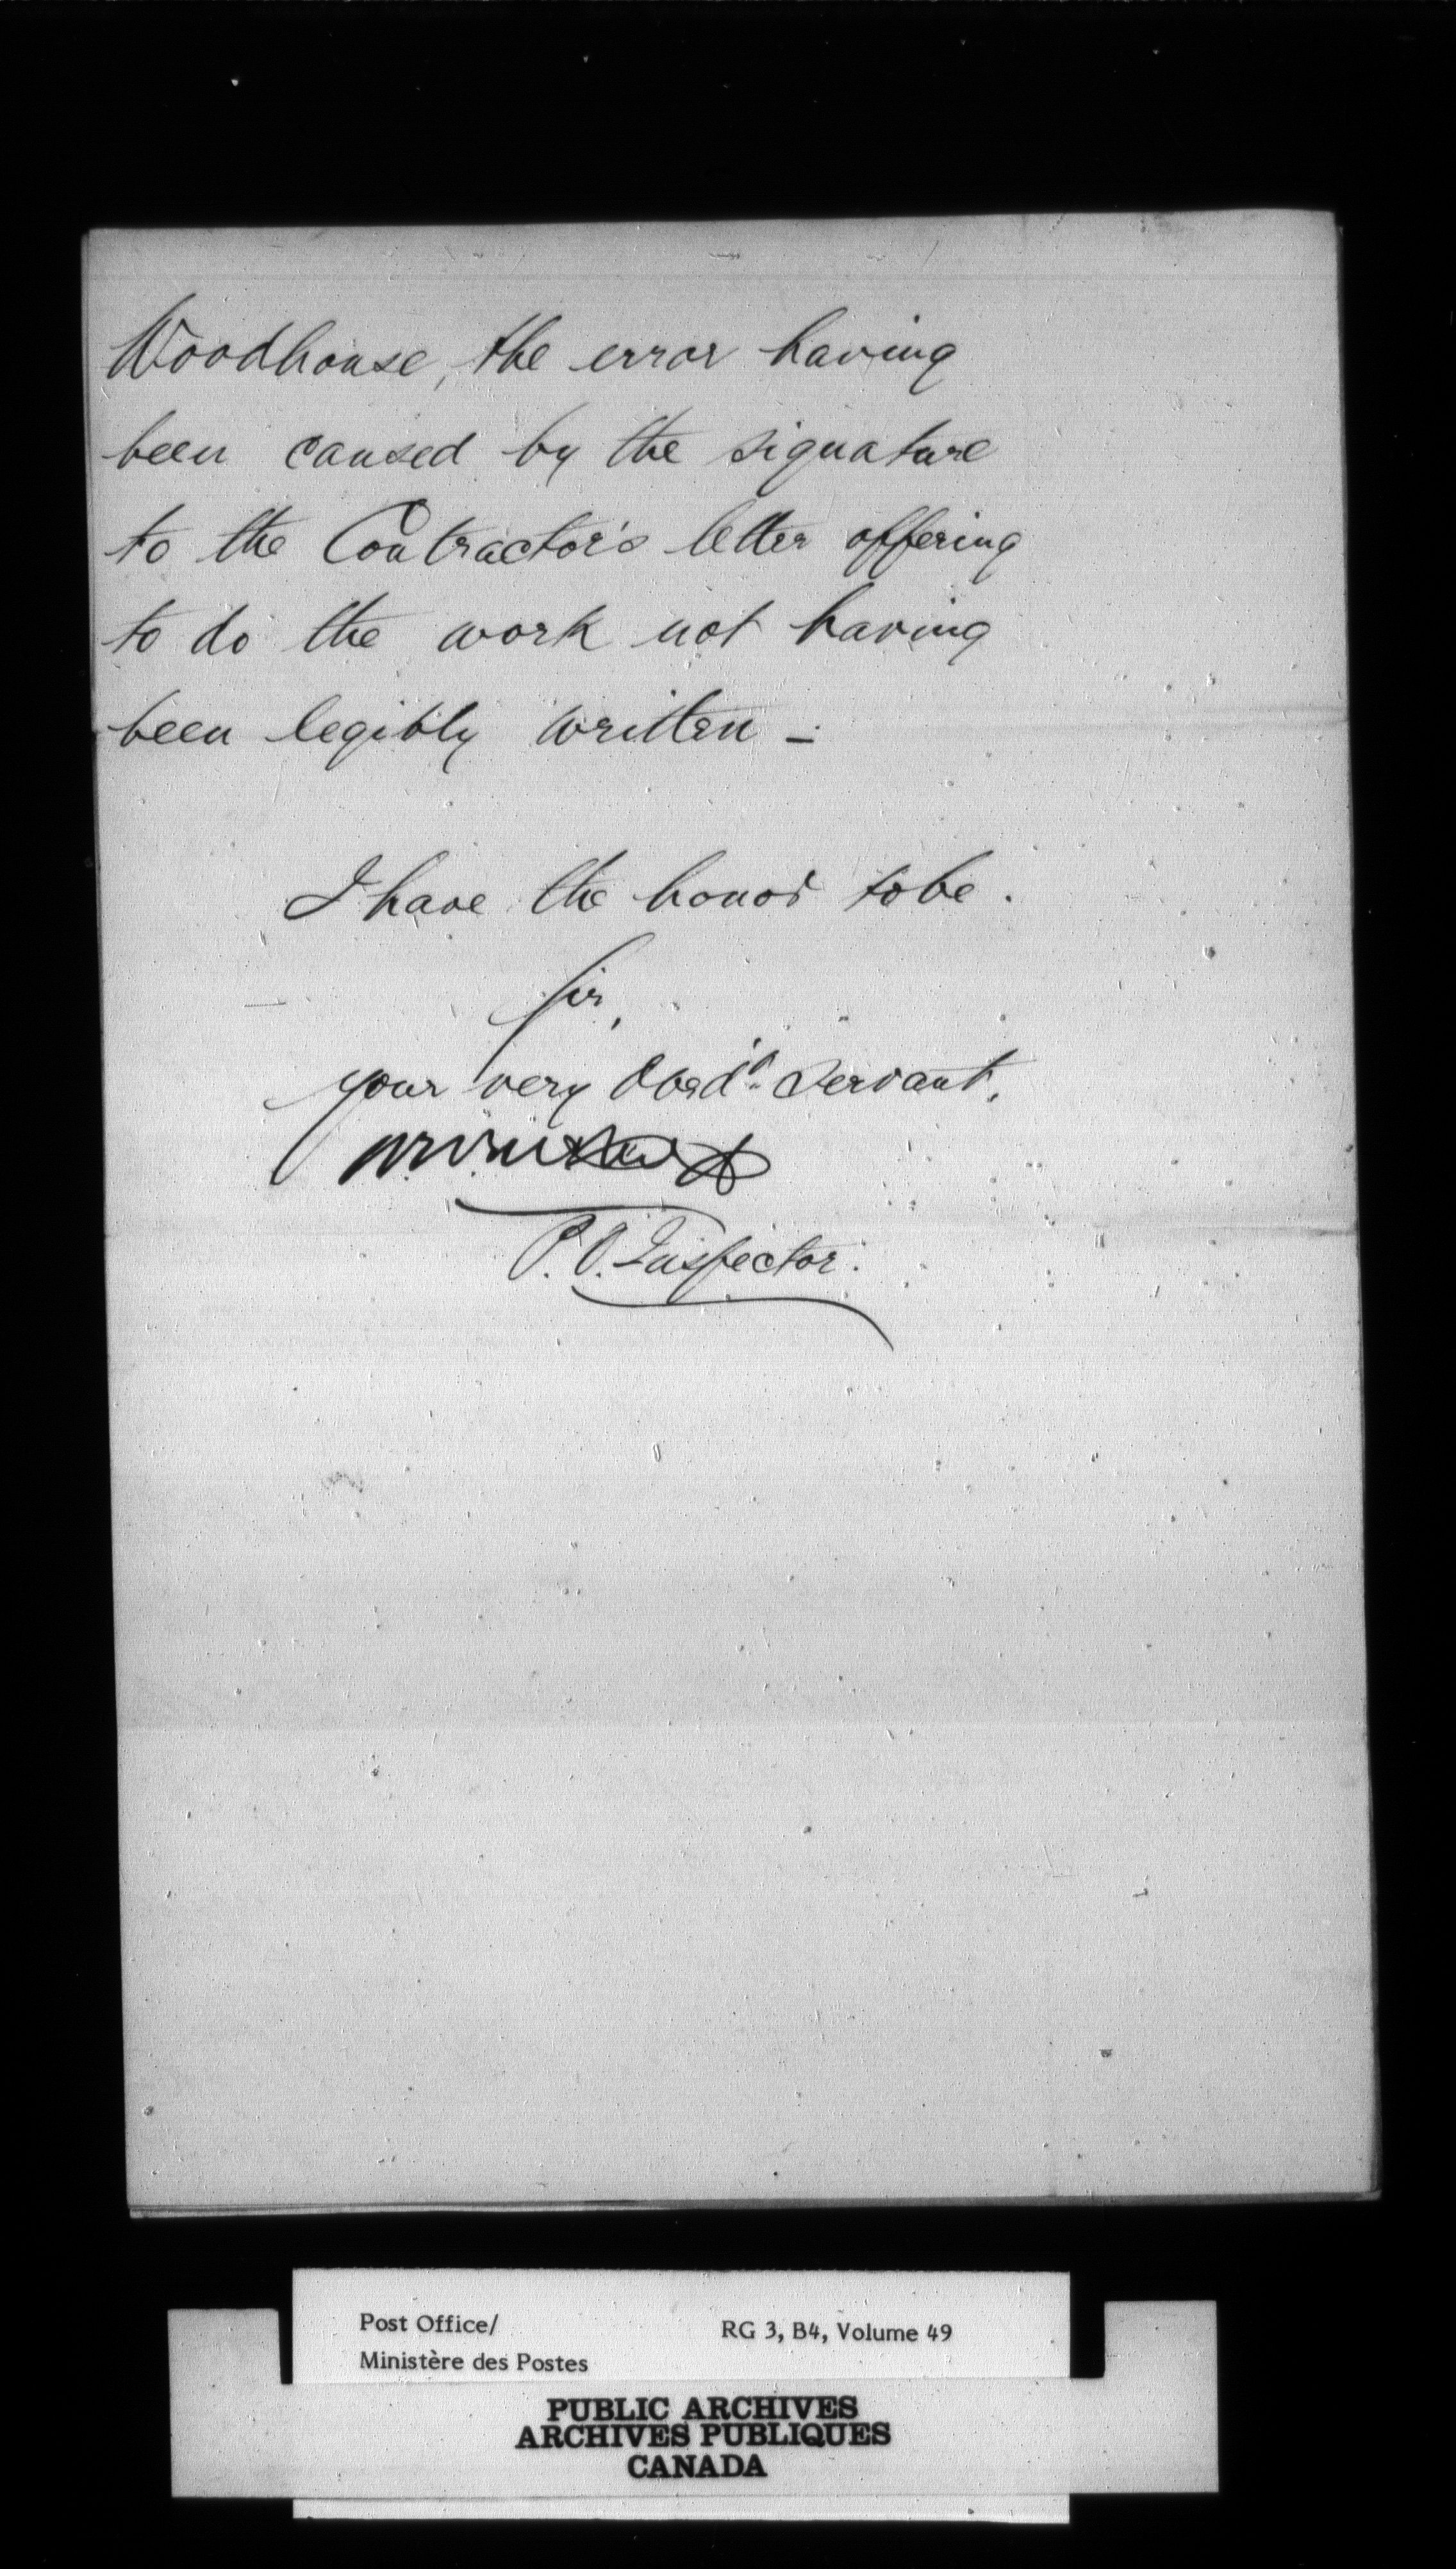 Woodhouse, the error having
been caused by the signature
to the Contractor's letter offering
to do the work not having
been legibly written –
I have the honor to be.
Sir,
your very Obed't Servant,
P.O. Inspector.
Post Office/
Ministère des Postes
RG 3, B4, Volume 49
PUBLIC ARCHIVES
ARCHIVES PUBLIQUES
CANADA